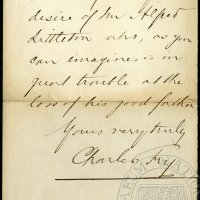 desire of Mr Alfred
Littleton who, as you
can imagine, is in
great trouble at the
loss of his good father
Yours very truly
Charles Fry